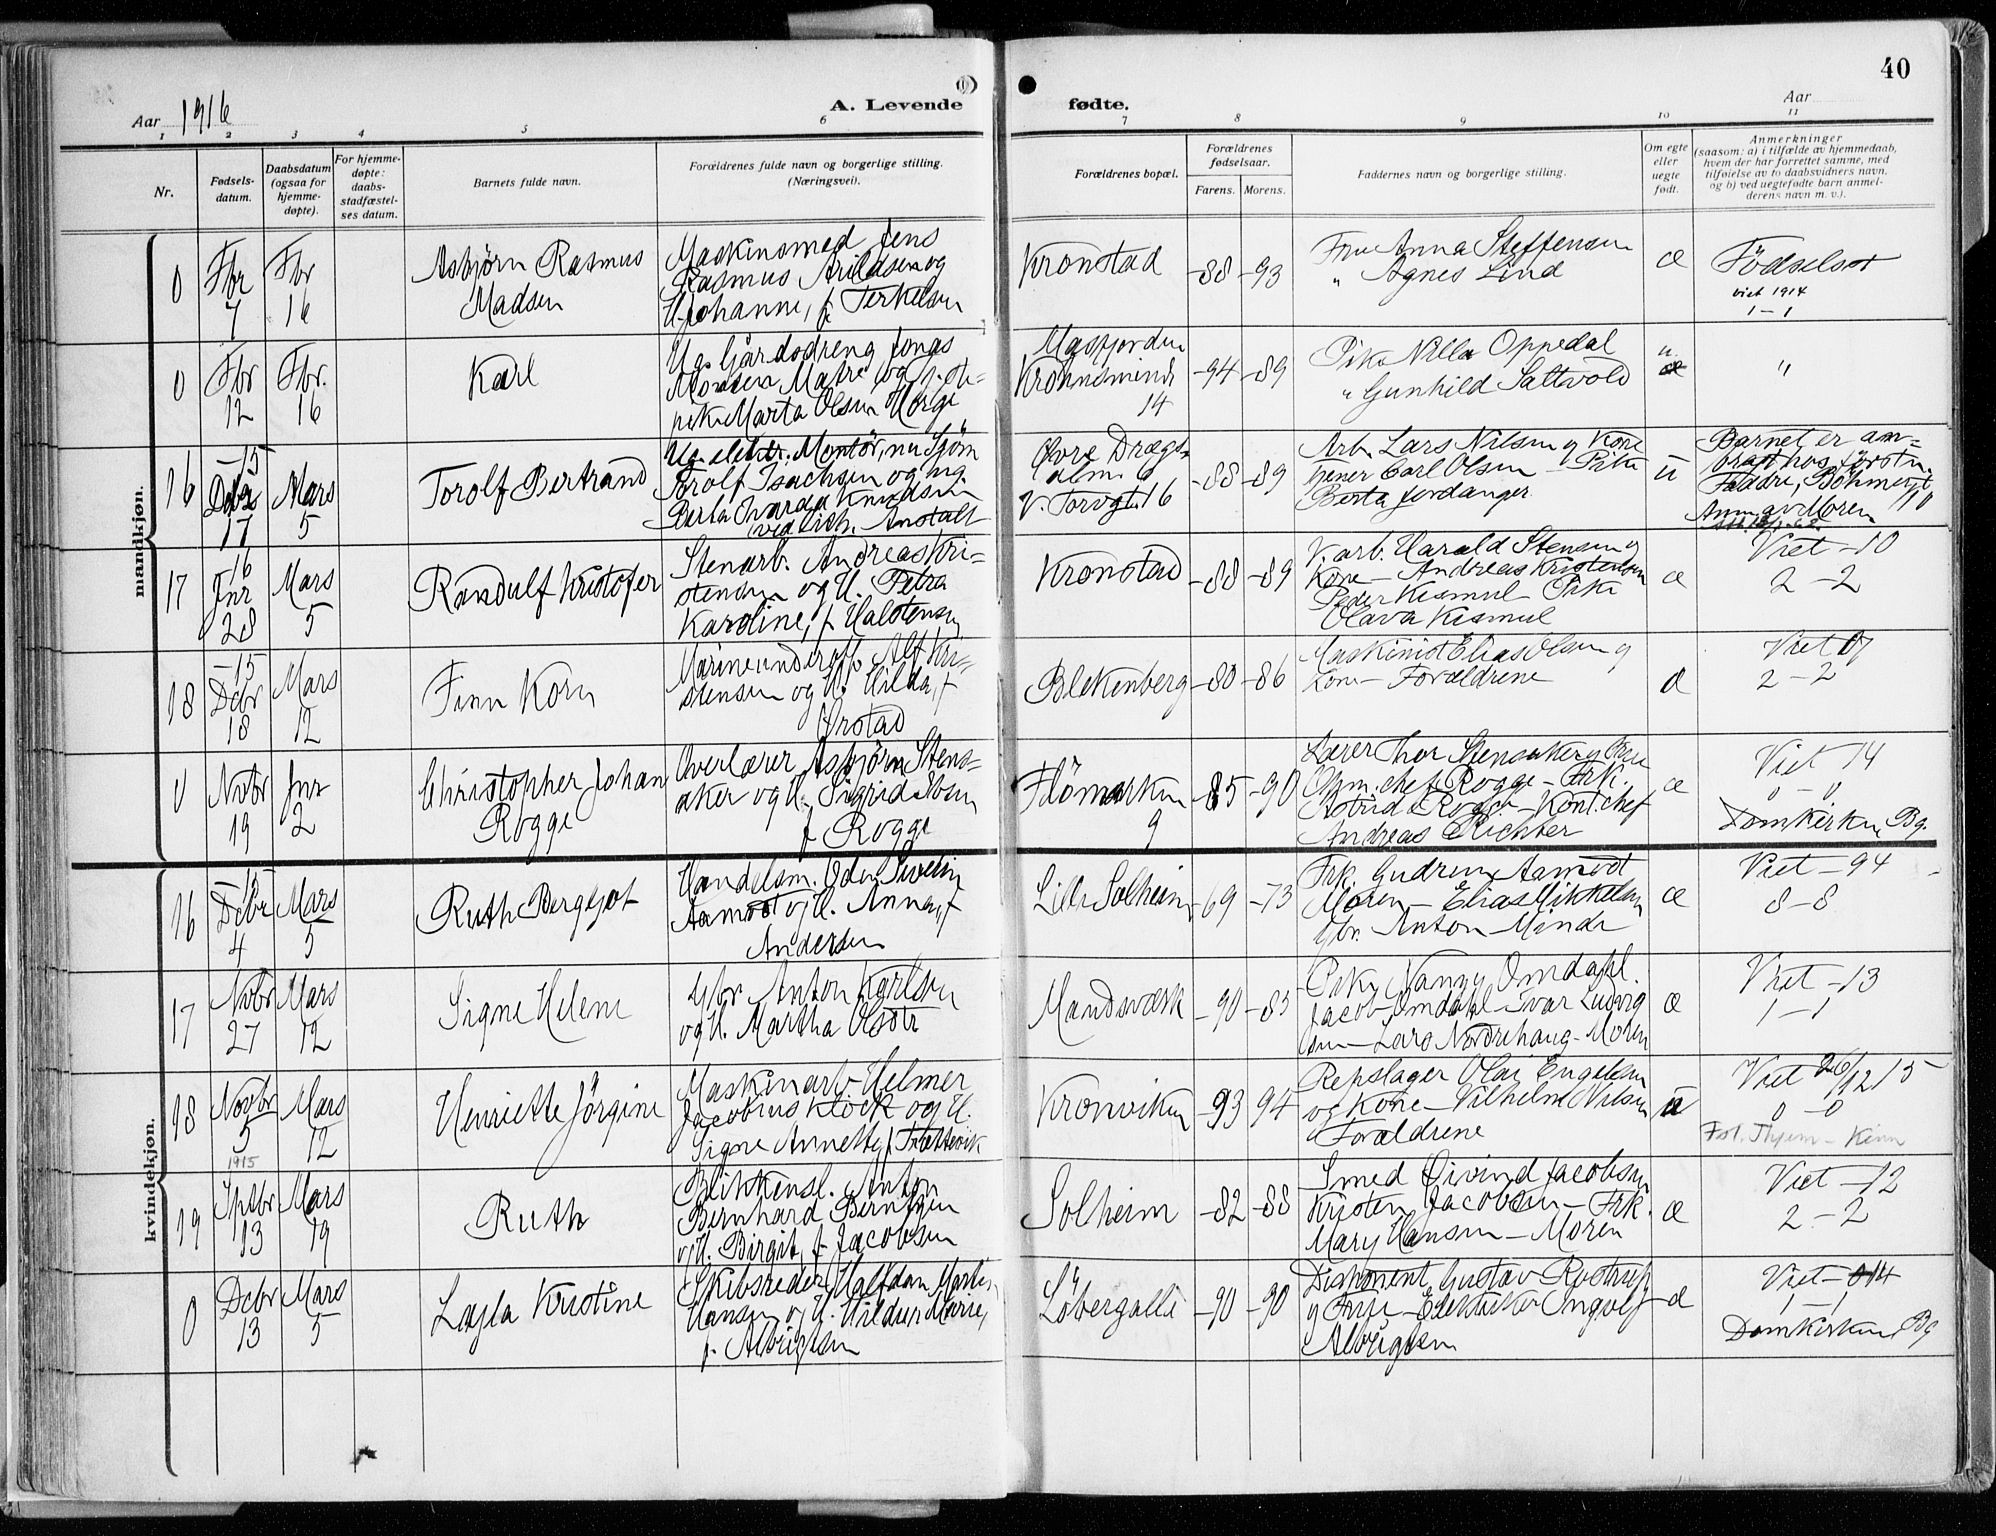 40
Aar 1916
A. Levende fødte.
Aar
1 2 3 4 5 6 7 8 9 10 11
Nr.
Fødsels-
datum.
Daabsdatum
(ogsaa for
hjemme-
døpte).
For hjemme-
døpte:
daabs-
stadfæstel-
ses datum.
Barnets fulde navn.
Forældrenes fulde navn og borgerlige stilling.
(Næringsvei).
Forældrenes bopæl.
Forældrenes
fødselsaar.
Farens. Morens.
Faddernes navn og borgerlige stilling.
Om egte
eller
uegte
født.
Anmerkninger
(saasom: a) i tilfælde av hjemmedaab,
hvem der har forrettet samme, med
tilføielse av to daabsvidners navn.
og b) ved uegtefødte barn anmel-
derens navn m. v.).
mandkjøn.
0
Fbr
7
Fbr
16
Asbjørn Rasmus
Madsen
Maskinsmed Jens
Rasmus Arildsen og
H. Johanne, f. Terkelsen
Kronstad
-88 -93
Frue Anna Steffensen
" Agnes Lind
æ
Födselsst
viet 1914
1-1
0
Fbr
12
Fbr.
16
Karl
Ug. Gårdsdreng Jongs
Monsen Matre og
pike Marta Olsen Horge
Masfjorden
Krohnsminde
14
-94 -89
Pike Nilla Oppedal
" Gunhild Saltvold
u.
"
16
-15
Dcbr
17
Mars
5
Torolf Bertrand
Ug. elektr. Montör, nu Sjöm
Torolf Isachsen og ug.
Berta Knudsen
ved Anstalt
Övre Drægs-
alm. 9
V. Torvgt. 16
-88 -89
Arb. Lars Nilsen og Kone
Carl Olsen - Pike
Berta Jordanger
u
Barnet er an-
bragt hos
Faddre, Böhmergt
110
Anm. av Moren
17
16
Jnr
28
Mars
5
Randulf Kristofer
Stenarb. Andreas Kri-
stensen og H. Petra
Karoline, f. Halstensen
Kronstad
-88 -89
V. arb. Harald Stensen og
Kone - Andreas Kristensen
Peder Kismul - Pike
Olava Kismul
æ
Viet -10
2-2
18
-15
Dcbr
18
Mars
12
Finn Korn
Marineunderoff. Alf Kri-
stensen og H. Hilda, f
Örstad
Blekenberg
-80 -86
Maskinist Elias Olsen og
Kone - Forældrene
æ
Viet 07
2-2
0
Nvbr
19
Jnr
2
Christopher Johan
Rogge
Overlærer Asbjörn Stens-
aker og H. Sigrid Ibsen
f Rogge
Flömarken
9
-85 -90
Lærer Thor Stensaker og
chef Rogge - Frk.
Astrid Rogge - Kont. chef
Andreas Richter
æ
Viet -14
0-0
Domkirken, Bg.
kvindekjøn.
16
15
Dcbr
4
Mars
5
Ruth Bergljot
Handelsm. Oden Sivein
Aamodt og H. Anna, f
Andersen
Lille Solheim
-69 -73
Frk. Gudrun Aamodt
Moren - Elias Mikkelsen
Anton Minde
æ
Viet -94
8-8
17
Nvbr
27
Mars
12
Signe Helene
Anton Karlsen
og H. Martha Olsdtr
Mandsværk
-90 -83
Pike Nanny Omdahl.
Jacob Omdahl - Ivar Ludvig
sen - Lars Nordrehaug - Moren
æ
Viet -13
1-1
18
Novbr
5
1915
Mars
12
Henriette Jörgine
Maskinarb. Helmer
Jacobinus Klock og H.
Signe Annette, f. Trættevik
Kronviken
-93 -94
Repslager Olai Engelsen
og Kone - Vilhelm Nilsen
Forældrene
Viet 26/12 15
0-0
19
Sptbr
13
Mars
19
Ruth
Blikkensl. Anton
Bernhard Berntzen
og H. Birgit, f. Jacobsen
Solheim
-82 -88
Smed Øivind Jacobsen
Kristen Jacobsen - Frk.
Mary Hansen - Moren
æ
Viet -12
2-2
0
Dcbr
13
Mars
5
Layla Kristine
Skibsreder Halfdan Martin
Hansen og H. Hildur Marie,
f. Alvrigsen
Löbergsalle
-90 -90
Disponent Gustav Rostrup
og Frue - Ingolf
Alvrigsen
æ
Viet -14
1-1
Domkirken, Bg